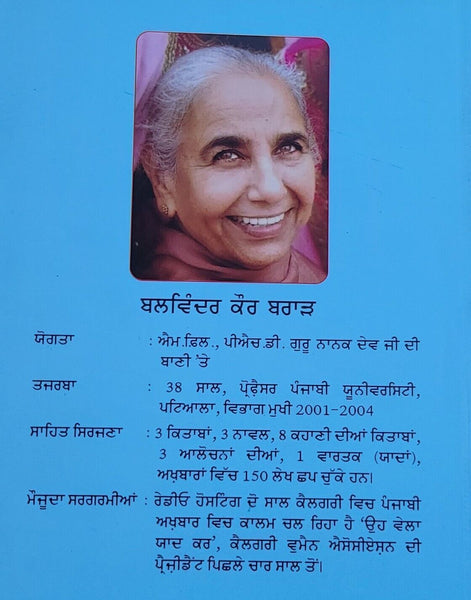 ਬਲਵਿੰਦਰ ਕੌਰ ਬਰਾੜ
ਯੋਗਤਾ : ਐਮ.ਫ਼ਿਲ., ਪੀਐਚ.ਡੀ. ਗੁਰੂ ਨਾਨਕ ਦੇਵ ਜੀ ਦੀ
ਬਾਣੀ 'ਤੇ
ਤਜਰਬਾ : 38 ਸਾਲ, ਪ੍ਰੋਫ਼ੈਸਰ ਪੰਜਾਬੀ ਯੂਨੀਵਰਸਿਟੀ,
ਪਟਿਆਲਾ, ਵਿਭਾਗ ਮੁਖੀ 2001-2004
ਸਾਹਿਤ ਸਿਰਜਣਾ : 3 ਕਿਤਾਬਾਂ, 3 ਨਾਵਲ, 8 ਕਹਾਣੀ ਦੀਆਂ ਕਿਤਾਬਾਂ,
3 ਆਲੋਚਨਾਂ ਦੀਆਂ, 1 ਵਾਰਤਕ (ਯਾਦਾਂ),
ਅਖ਼ਬਾਰਾਂ ਵਿੱਚ 150 ਲੇਖ ਛਪ ਚੁੱਕੇ ਹਨ।
ਮੌਜੂਦਾ ਸਰਗਰਮੀਆਂ : ਰੇਡੀਓ ਹੋਸਟਿੰਗ ਦੋ ਸਾਲ ਕੈਲਗਰੀ ਵਿਚ ਪੰਜਾਬੀ
ਅਖ਼ਬਾਰ ਵਿਚ ਕਾਲਮ ਚਲ ਰਿਹਾ ਹੈ 'ਉਹ ਵੇਲਾ
ਯਾਦ ਕਰ', ਕੈਲਗਰੀ ਵੁਮੈਨ ਐਸੋਸੀਏਸ਼ਨ ਦੀ
ਪ੍ਰੈਜ਼ੀਡੈਂਟ ਪਿਛਲੇ ਚਾਰ ਸਾਲ ਤੋਂ।